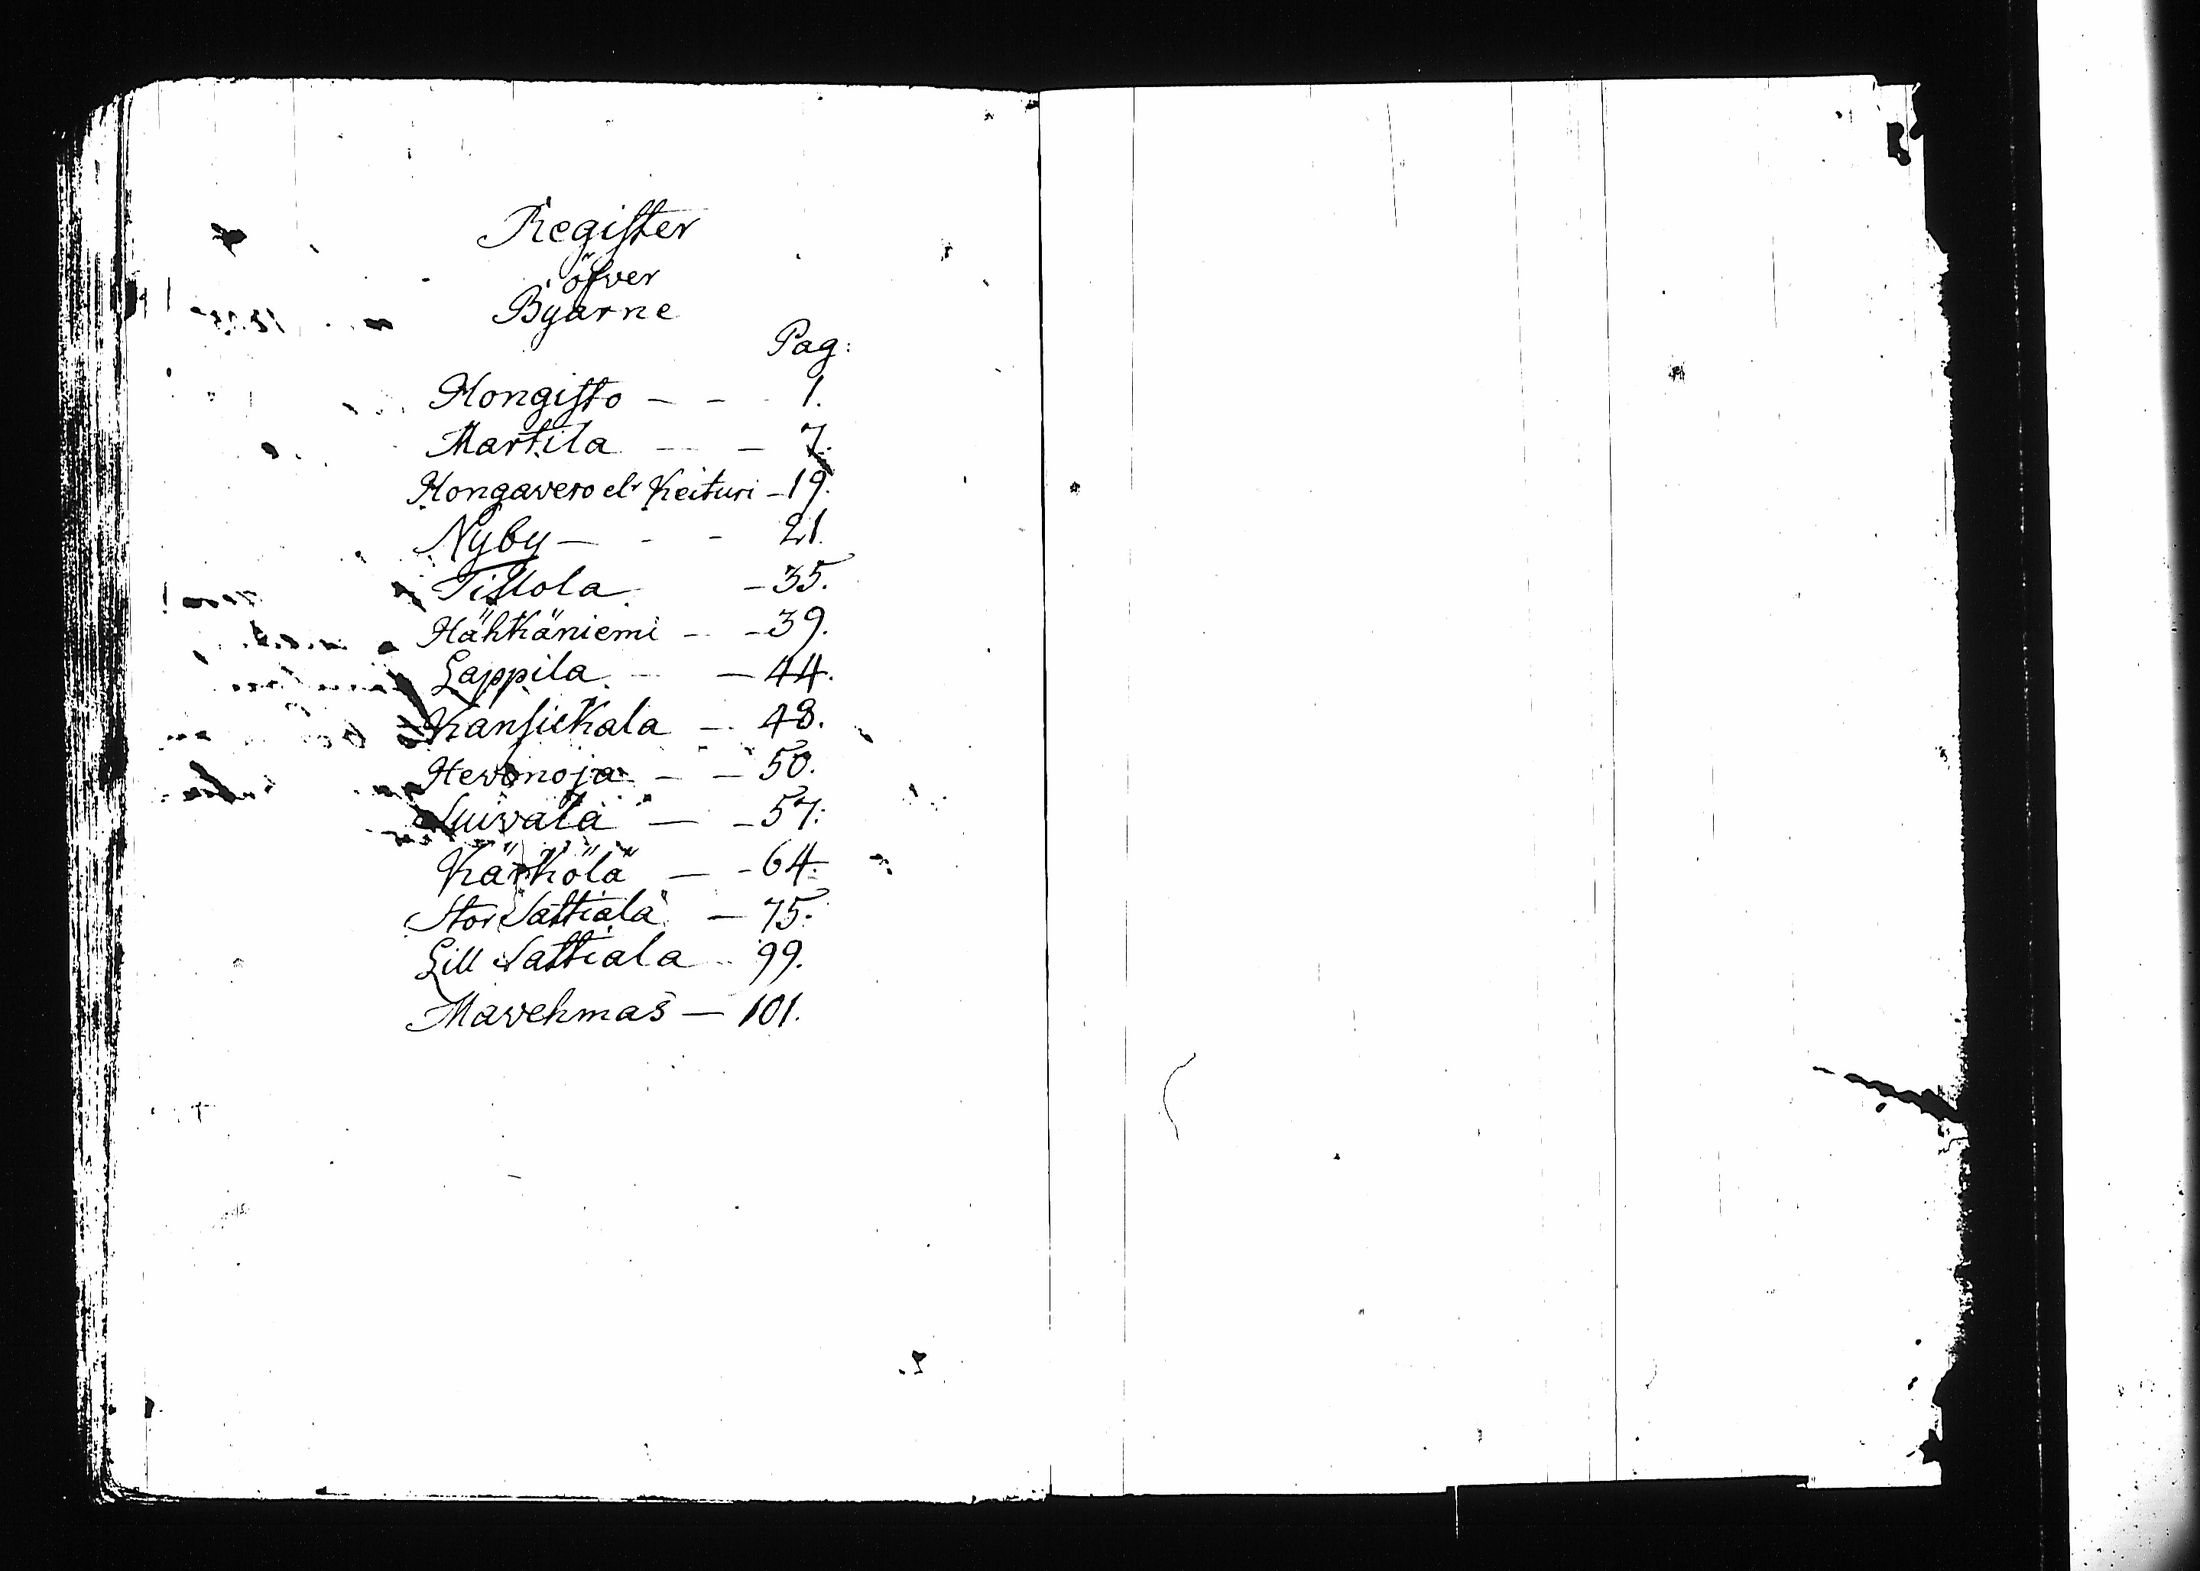 Register
öfver
Byarne
Pag:
Hongisto — — - 1.
Martila — — 7.
Hongavero elr Keituri - 19.
Nyby — - - 21.
Tillola - 35.
Hähkäniemi - - 39.
Lappila - — 44.
Kansickala — 48.
Hevonoja — — 50.
Luivala — - 57.
Kärkölä — - 64.
Stor Sattiala — 75.
Lill Sattiala - 99.
Mavehmas — 101.